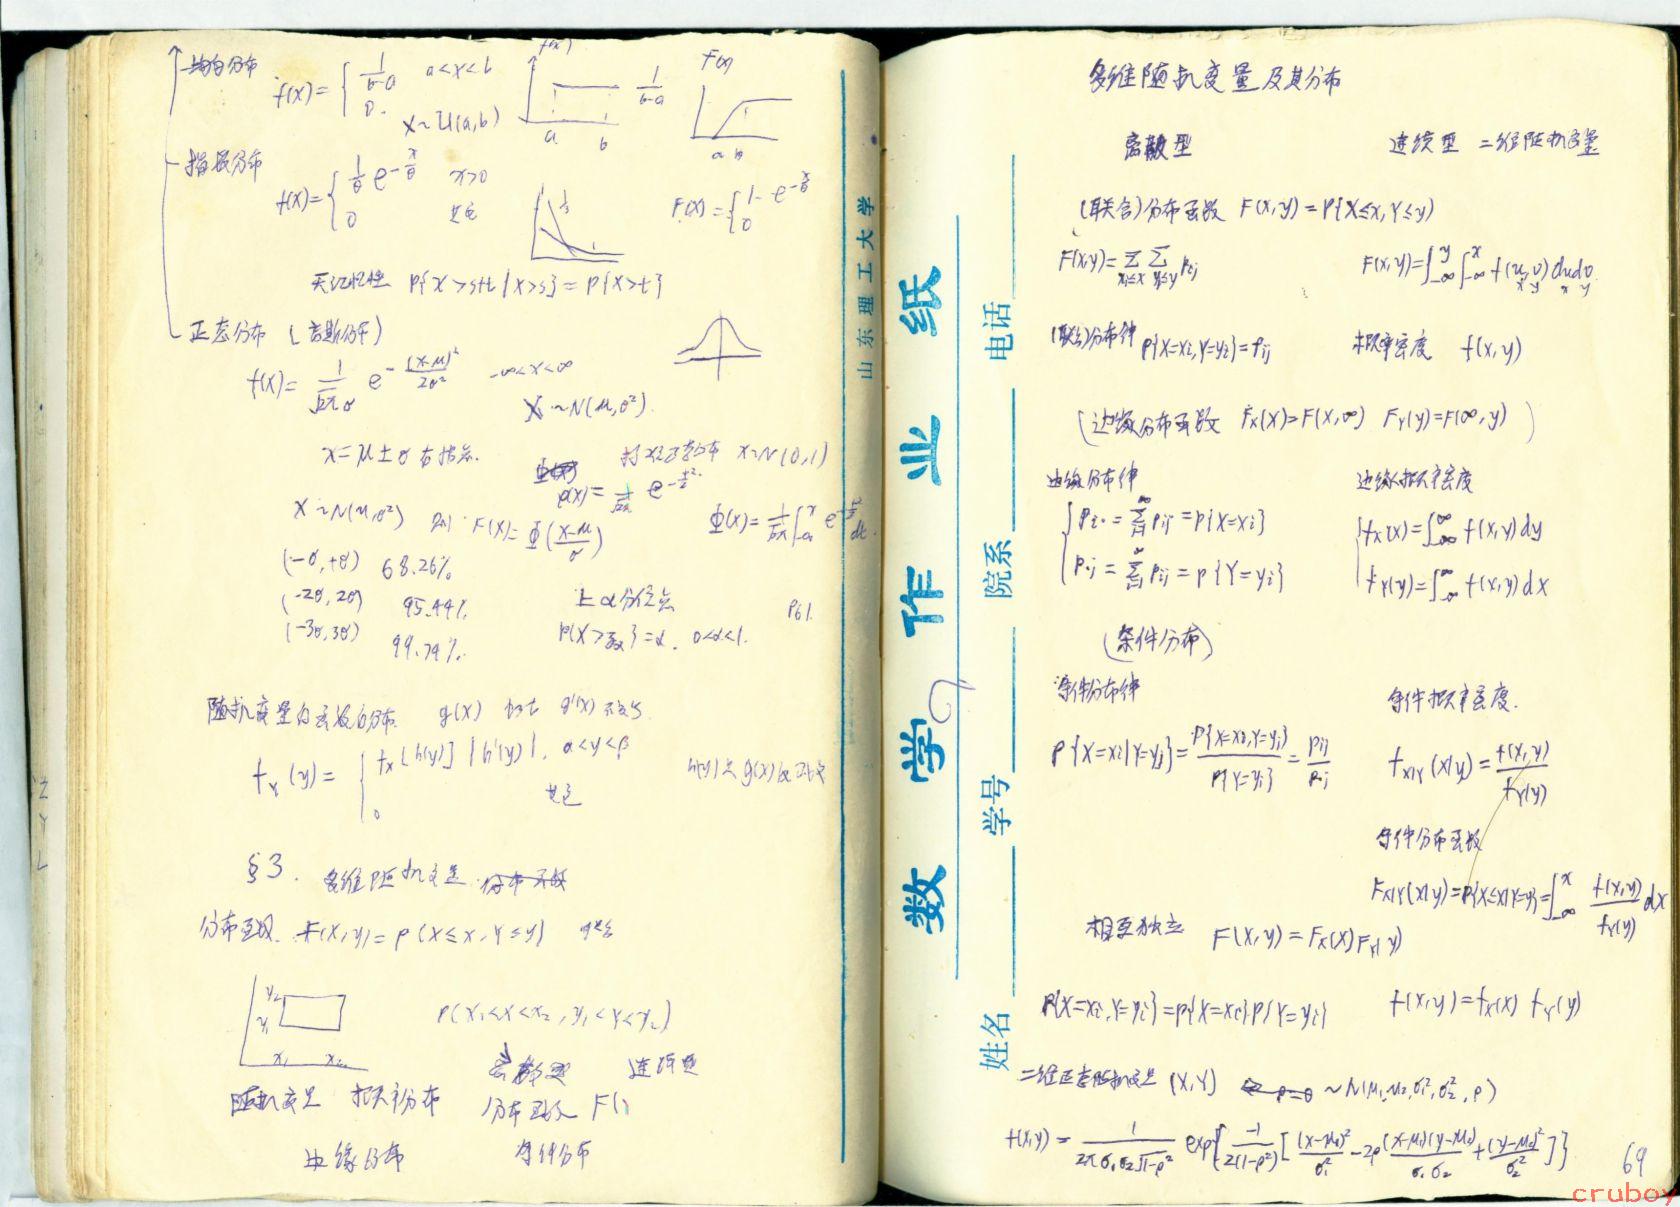 均匀分布 f(x)= { 1/(b-a) a<x<b
0.
X~U(a,b)
f(x) 1/(b-a) a b
F(x) a b
指数分布 f(x)= { 1/θ e^{-x/θ} x>0
0 其它
F(x)= { 1-e^{-x/θ}
0
无记忆性 P{X>s+t|X>s}=P{X>t}
正态分布 (高斯分布)
f(x)= 1/(√2π σ) e^{-(x-μ)²/2σ²} -∞<x<∞
X~N(μ,σ²).
x=μ±σ 有拐点.
标准正态分布 X~N(0,1)
φ(x)= 1/√2π e^{-t²/2}
X~N(μ,σ²) 则 F(x)=Φ((x-μ)/σ)
(-σ,+σ) 68.26%
(-2σ,2σ) 95.44%
(-3σ,3σ) 99.74%
上α分位点
P{X>zα}=α. 0<α<1.
P61.
随机变量的函数的分布. g(x)
f_Y(y)= { f_X[h(y)] |h'(y)|, α<y<β
0 其它
§3. 多维随机变量 分布函数
分布函数. F(x,y)=P(X≤x,Y≤y)
y₂
y₁
x₁ x₂
P(x₁<X<x₂,y₁<Y<y₂)
离散型 连续型
随机变量 概率分布 分布函数 F(
边缘分布 条件分布
山东理工大学
数学作业纸
姓名 学号 院系 电话
多维随机变量及其分布
离散型 连续型 二维随机变量
(联合)分布函数 F(x,y)=P{X≤x,Y≤y}
F(x,y)= Σ_{xi≤x} Σ_{yj≤y} Pij F(x,y)=∫_{-∞}^{y}∫_{-∞}^{x} f(u,v)dudv.
x y x y
(联合)分布律 P{X=xi,Y=yi}=Pij 概率密度 f(x,y)
(边缘分布函数 F_X(x)=F(x,∞) F_Y(y)=F(∞,y) )
边缘分布律 边缘概率密度
Pi·= Σ Pij =P{X=xi} f_X(x)=∫_{-∞}^{∞} f(x,y)dy
P·j= Σ Pij =P{Y=yi} f_Y(y)=∫_{-∞}^{∞} f(x,y)dx
(条件分布)
条件分布律 条件概率密度.
P{X=xi|Y=yj}= P{X=xi,Y=yj}/P{Y=yj} = Pij/P·j f_{X|Y}(x|y)= f(x,y)/f_Y(y)
条件分布函数
F_{X|Y}(x|y)=P{X≤x|Y=y}=∫_{-∞}^{x} f(x,y)/f_Y(y) dx
相互独立 F(x,y)=F_X(x)F_Y(y)
P{X=xi,Y=yi}=P{X=xi}P{Y=yi} f(x,y)=f_X(x) f_Y(y)
二维正态随机变量 (X,Y) ρ=0 ~N(μ₁,μ₂,σ₁²,σ₂²,ρ)
f(x,y)= 1/(2πσ₁σ₂√(1-ρ²)) exp{ -1/(2(1-ρ²)) [ (x-μ₁)²/σ₁² -2ρ (x-μ₁)(y-μ₂)/(σ₁σ₂) + (y-μ₂)²/σ₂² ] }
69
cruboy